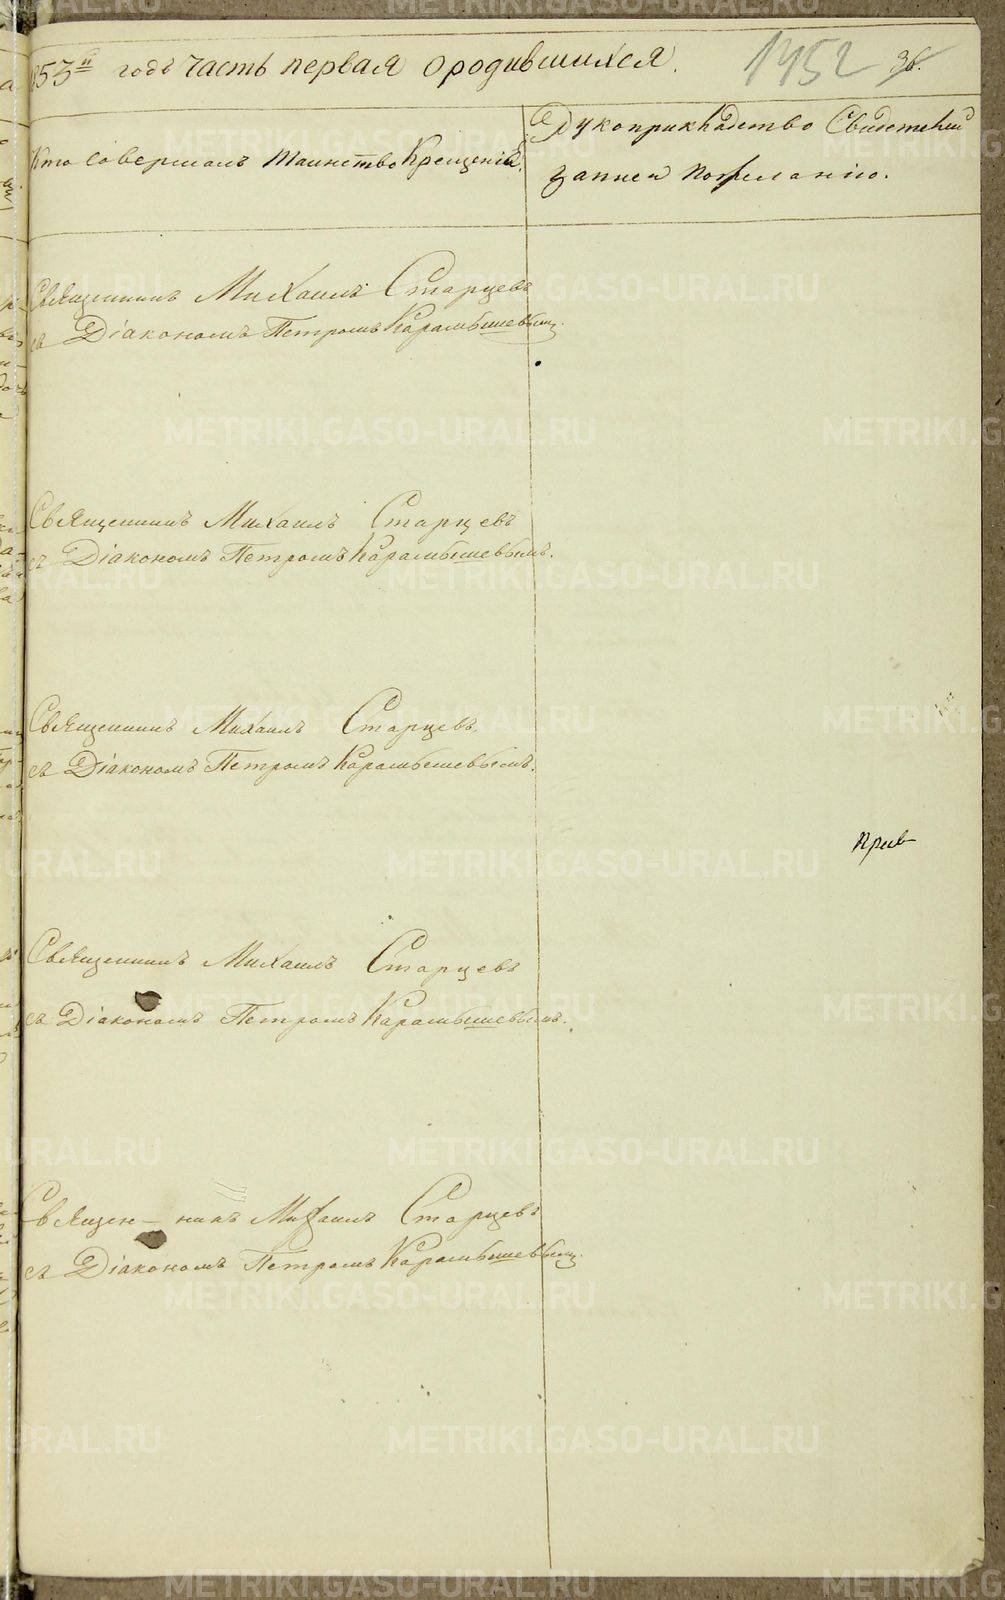 1853й годъ часть первая о родившихся.
1452
36.
Кто совершалъ таинство крещенія.
Рукоприкладство Свидетелей
записи по желанію.
Священникъ Михаилъ Старцевъ
съ Діакономъ Петромъ Карамышевымъ.
Священникъ Михаилъ Старцевъ
съ Діакономъ Петромъ Карамышевымъ.
Священникъ Михаилъ Старцевъ.
съ Діакономъ Петромъ Карамышевымъ.
Священникъ Михаилъ Старцевъ
съ Діакономъ Петромъ Карамышевымъ.
Священ-никъ Михаилъ Старцевъ
съ Діакономъ Петромъ Карамышевымъ.
METRIKI.GASO-URAL.RU